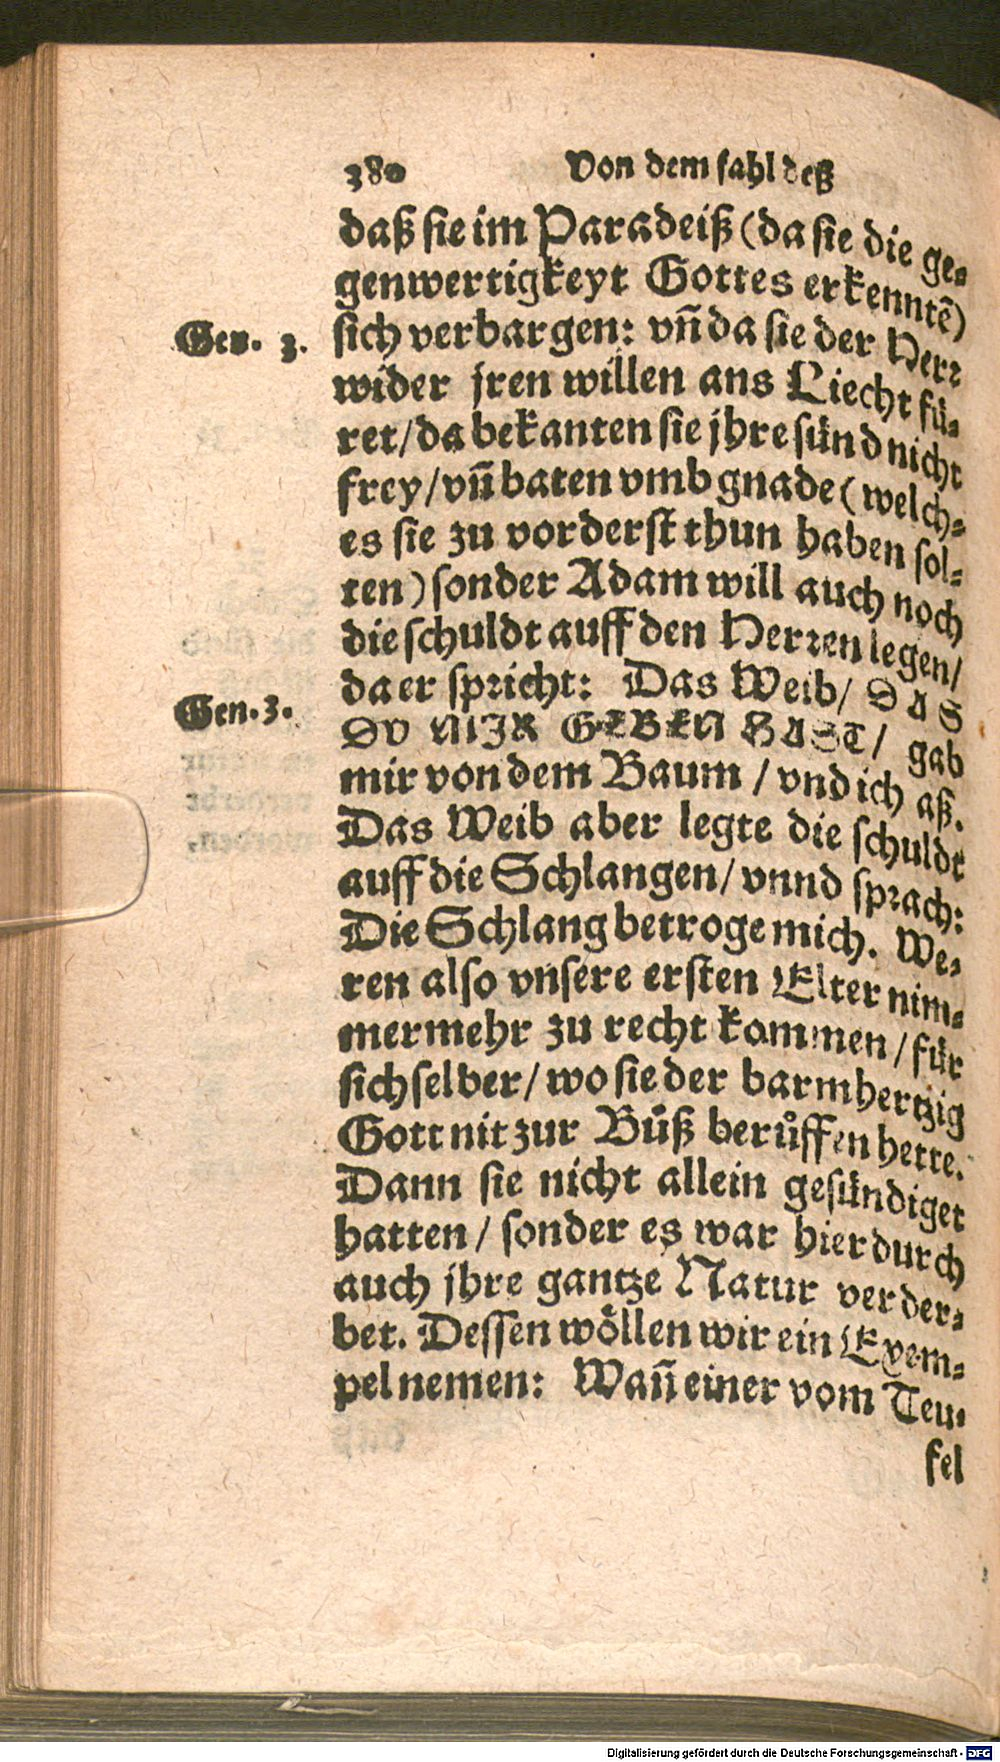 380 Von dem fahl deß
daß sie im Paradeiß (da sie die ge-
genwertigkeyt Gottes erkenntē)
Gen. 3. sich verbargen: vñ da sie der Herr
wider jren willen ans Liecht fü-
ret/ da bekanten sie jhre sünd nicht
frey/ vñ baten vmb gnade (welch-
es sie zu vorderst thun haben sol-
ten) sonder Adam will auch noch
die schuldt auff den Herren legen/
Gen. 3. da er spricht: Das Weib/ DAS
DV MIR GEBEN HAST/ gab
mir von dem Baum / vnd ich aß.
Das Weib aber legte die schuldt
auff die Schlangen/ vnnd sprach:
Die Schlang betroge mich. We-
ren also vnsere ersten Elter nim-
mermehr zu recht kommen / für
sich selber/ wo sie der barmhertzig
Gott nit zur Bůß berůffen hette.
Dann sie nicht allein gesündiget
hatten / sonder es war hierdurch
auch jhre gantze Natur verder-
bet. Dessen wöllen wir ein Exem-
pel nemen: Wañ einer vom Teu-
fel
Digitalisierung gefördert durch die Deutsche Forschungsgemeinschaft - DFG